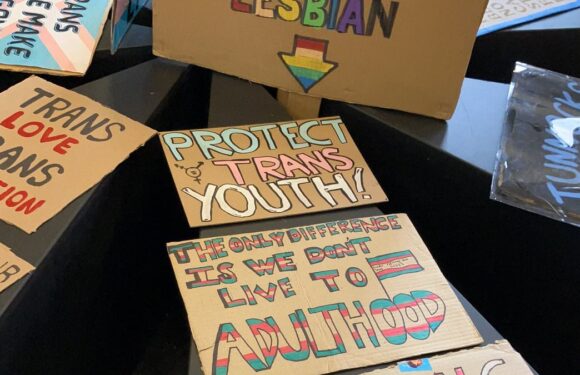 TRANS
WE MAKE
LESBIAN
TRANS
LOVE
RANS
TION
PROTECT
TRANS
YOUTH!
THE ONLY DIFFERENCE
IS WE DON'T
LIVE TO
ADULTHOOD